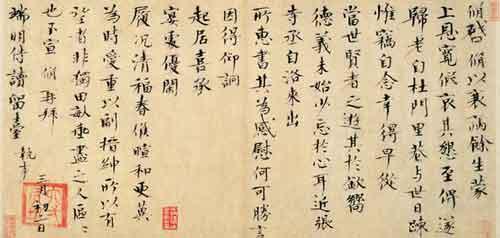 脩啓脩以衰病餘生蒙
上恩寬假哀其懇至俾遂
歸老自杜門里巷與世日疎
惟竊自念幸得早從
當世賢者之遊其於欽嚮
德義未始少忘於心耳近張
寺丞自洛來出
所惠書其為感慰何可勝言
因得仰詗
起居喜承
宴處優閑
履況清福春候暄和更冀
為時愛重以副搢紳所以有
望者非獨田畝垂盡之人區區
也不宣脩再拜
端明侍讀留臺執事
三月初二日